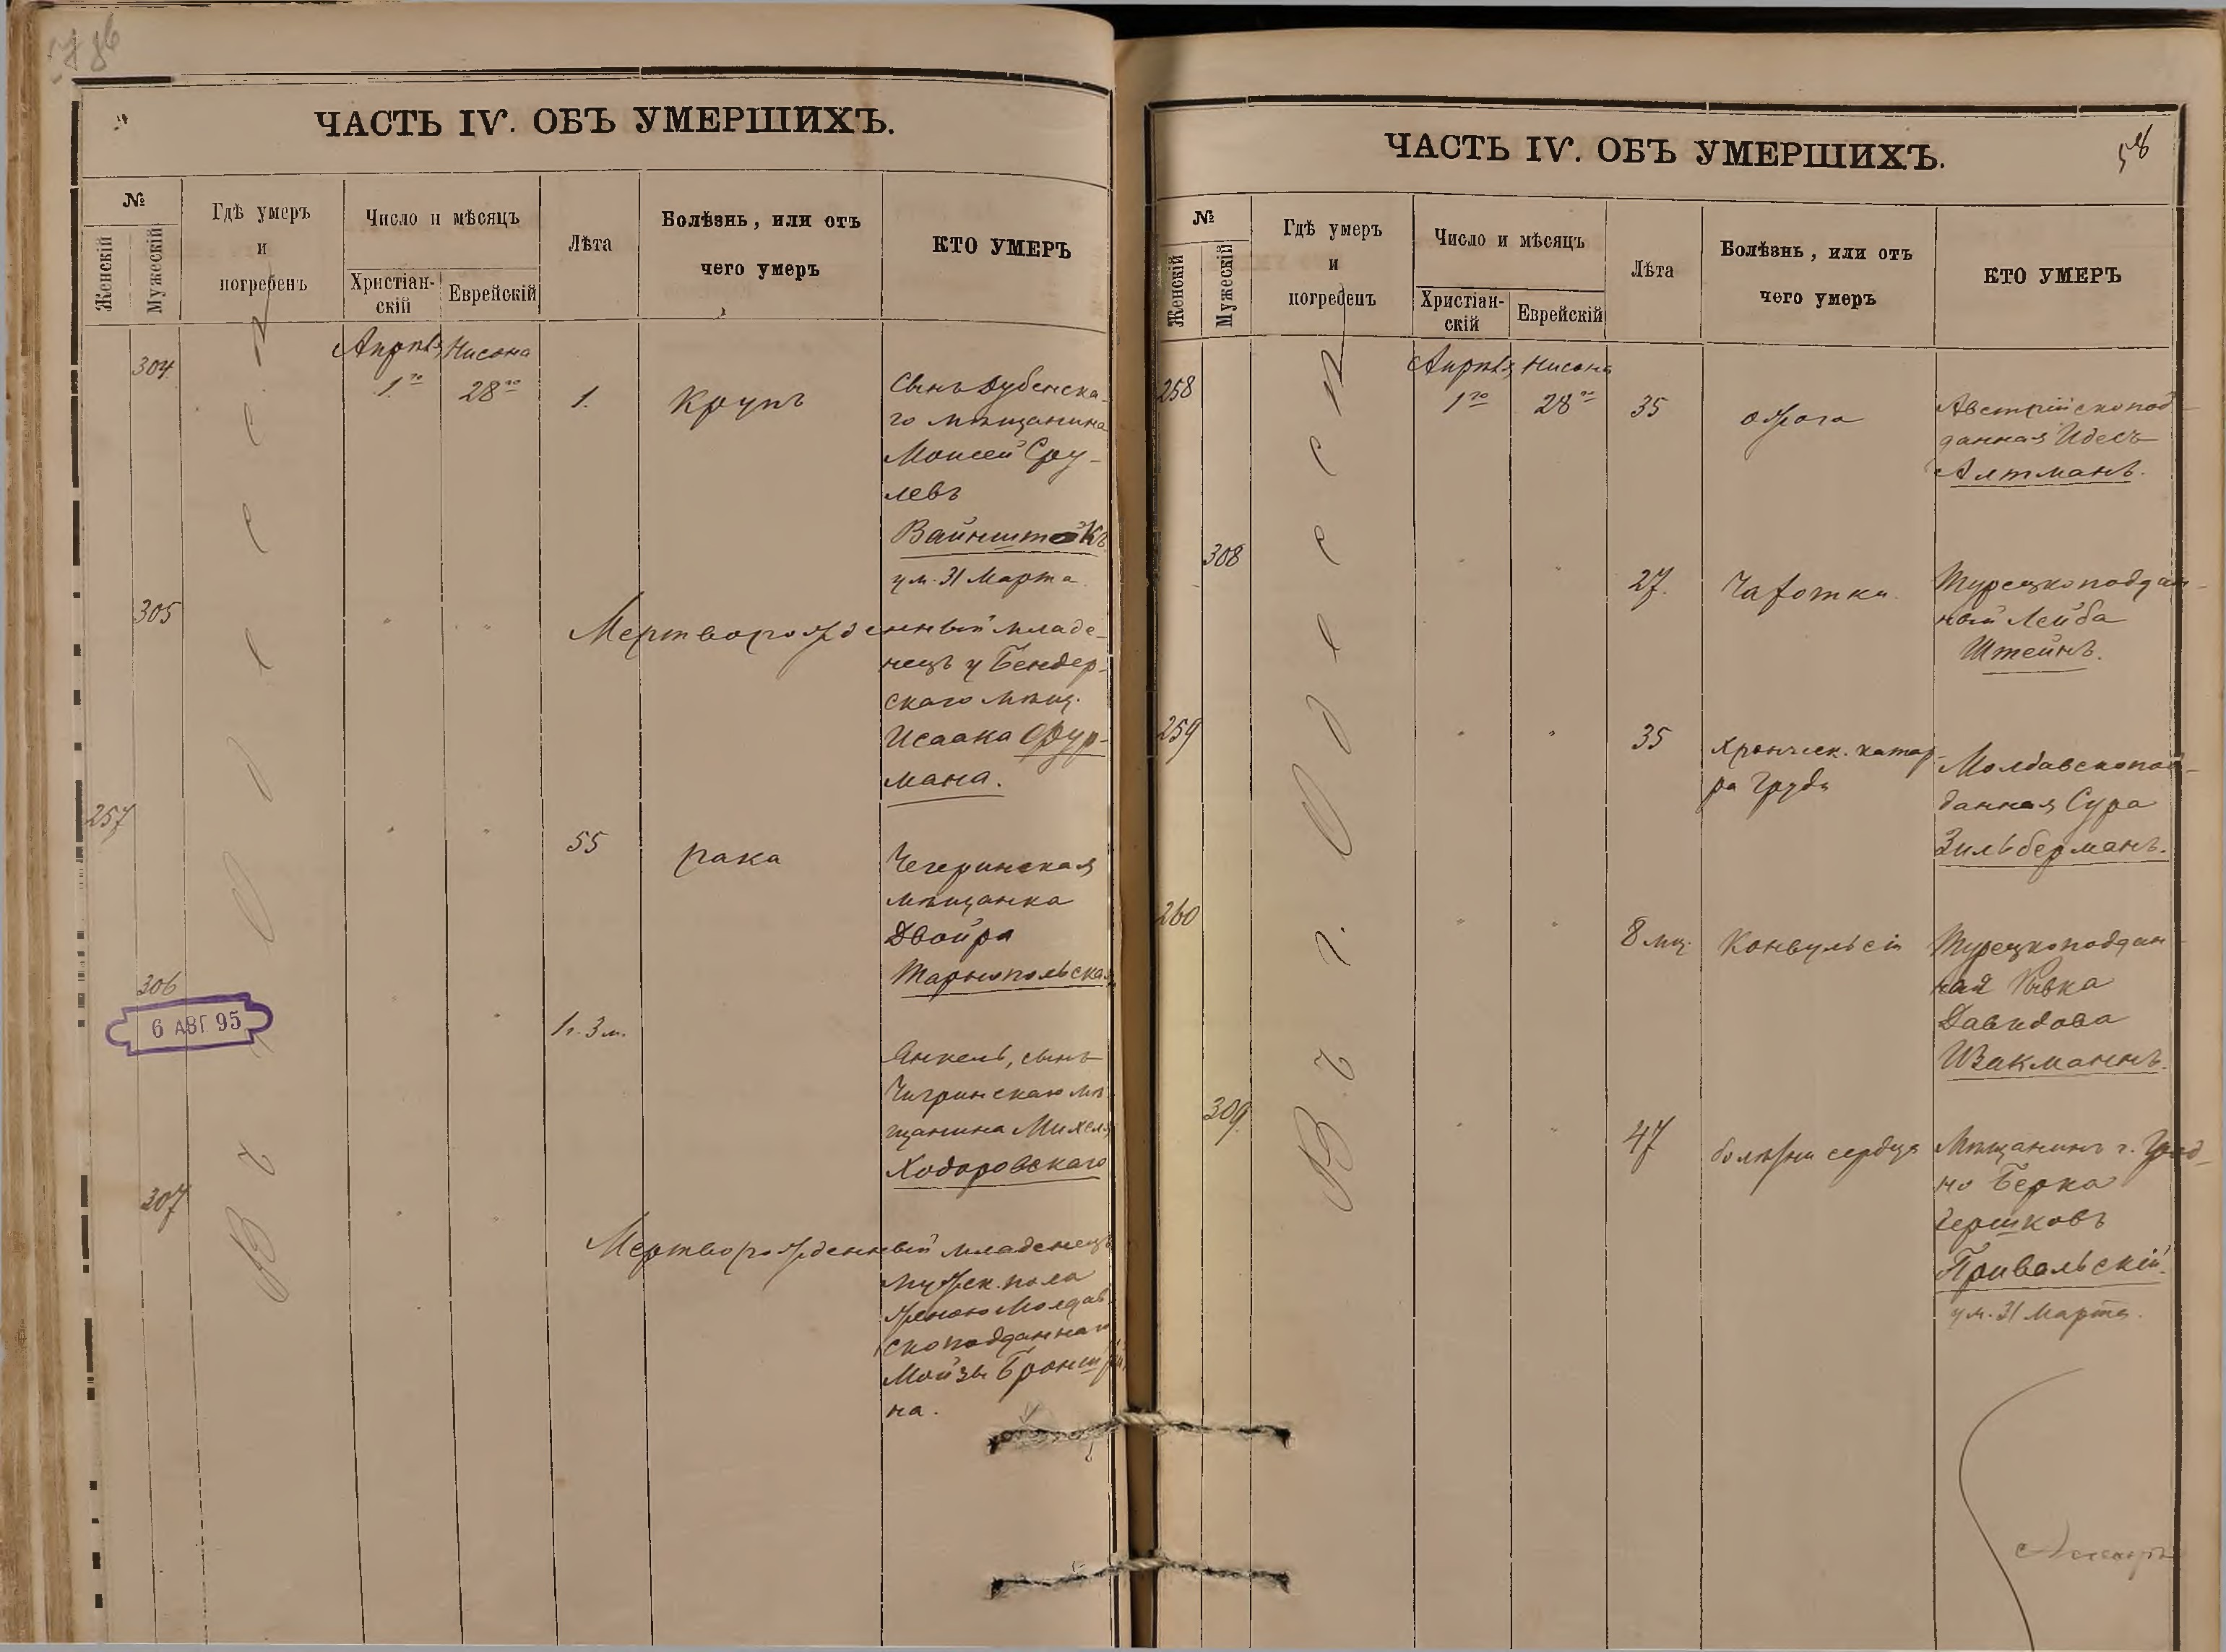 ЧАСТЬ IV. ОБЪ УМЕРШИХЪ.
№
Женскій
Мужескій
Гдѣ умеръ
и
погребенъ
Число и мѣсяцъ
Христіан-
скій
Еврейскій
Лѣта
Болѣзнь, или отъ
чего умеръ
КТО УМЕРЪ
Въ Одессѣ
304
Апрѣля
1го
Нисона
28го
1.
Крупъ
Сынъ Дубенска-
го мѣщанина
Моисей Сру-
левъ
Вайнштокъ
ум. 31 Марта
305
" "
Мертворожденный младе-
нецъ у Бендер-
скаго мѣщ.
Исаака Фур-
мана.
257
" "
55
рака
Чегеринская
мѣщанка
Двойра
Тарнопольская
306
6 АВГ. 95
" "
1 г. 3 м.
Янкель, сынъ
Чигринскаго мѣ-
щанина Михеля
Ходоровскаго
307
" "
Мертворожденный младенецъ
мужск. пола
женою Молдав-
скоподданнаго
Мойзы Бронштей-
на.
ЧАСТЬ IV. ОБЪ УМЕРШИХЪ.
58
№
Женскій
Мужескій
Гдѣ умеръ
и
погребенъ
Число и мѣсяцъ
Христіан-
скій
Еврейскій
Лѣта
Болѣзнь, или отъ
чего умеръ
КТО УМЕРЪ
Въ г. Одессѣ
258
Апрѣля
1го
Нисона
28го
35
ожога
Австрійскопод-
данная Идесъ
Алтманъ.
308
" "
27.
Чахотки.
Турецкоподдан-
ный Лейба
Штейнъ.
259
" "
35
хроническ. катар-
ра груди
Молдавскопод-
данная Сура
Зильберманъ.
260
" "
8 мц.
Конвульсіи
Турецкоподдан-
ная Ривка
Давидова
Изакманнъ.
309
" "
47
болѣзни сердца
Мѣщанинъ г. Грод-
но Берка
Гершковъ
Привальскій
ум. 31 Марта.